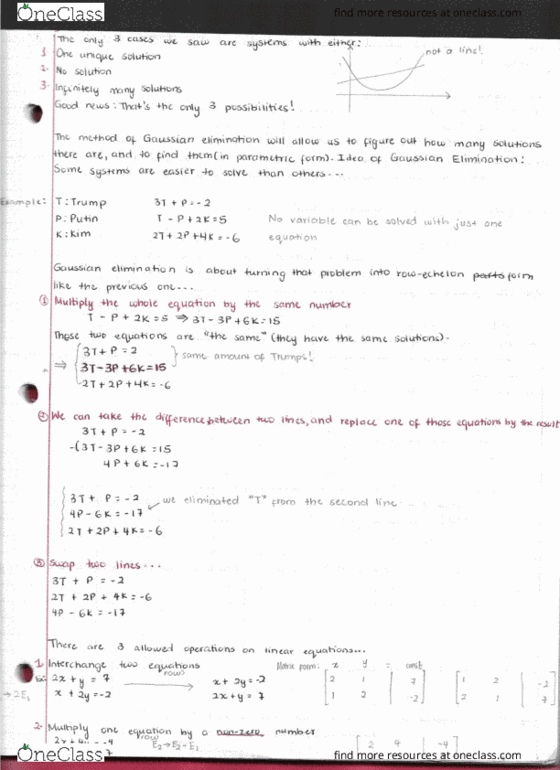 OneClass
find more resources at oneclass.com
The only 3 cases we saw are systems with either:
1. One unique solution
2. No solution
3. Infinitely many solutions
not a line!
Good news: That's the only 3 possibilities!
The method of Gaussian elimination will allow us to figure out how many solutions
there are, and to find them (in parametric form). Idea of Gaussian Elimination:
Some systems are easier to solve than others...
Example: T: Trump 3T + P = -2
P: Putin T - P + 2K = 5 No variable can be solved with just one
K: Kim 2T + 2P + 4K = -6 equation
Gaussian elimination is about turning that problem into row-echelon form
like the previous one...
① Multiply the whole equation by the same number
T - P + 2K = 5 ⇒ 3T - 3P + 6K = 15
Those two equations are "the same" (they have the same solutions).
3T + P = 2
⇒ 3T - 3P + 6K = 15 } same amount of Trumps!
2T + 2P + 4K = -6
② We can take the difference between two lines, and replace one of those equations by the result
3T + P = -2
-(3T - 3P + 6K = 15
4P + 6K = -17
3T + P = -2
4P - 6K = -17 we eliminated "T" from the second line
2T + 2P + 4K = -6
③ Swap two lines...
3T + P = -2
2T + 2P + 4K = -6
4P - 6K = -17
There are 3 allowed operations on linear equations...
1. Interchange two equations Matrix form: x y = const
row
2x + y = 7 → x + 2y = -2 [2 1 | 7] [1 2 | -2]
→ 2E₁ x + 2y = -2 2x + y = 7 [1 2 | -2] [2 1 | 7]
2. Multiply one equation by a non-zero number
row
E₂ → E₂ - E₁
[2 4 | -4]
OneClass
find more resources at oneclass.com